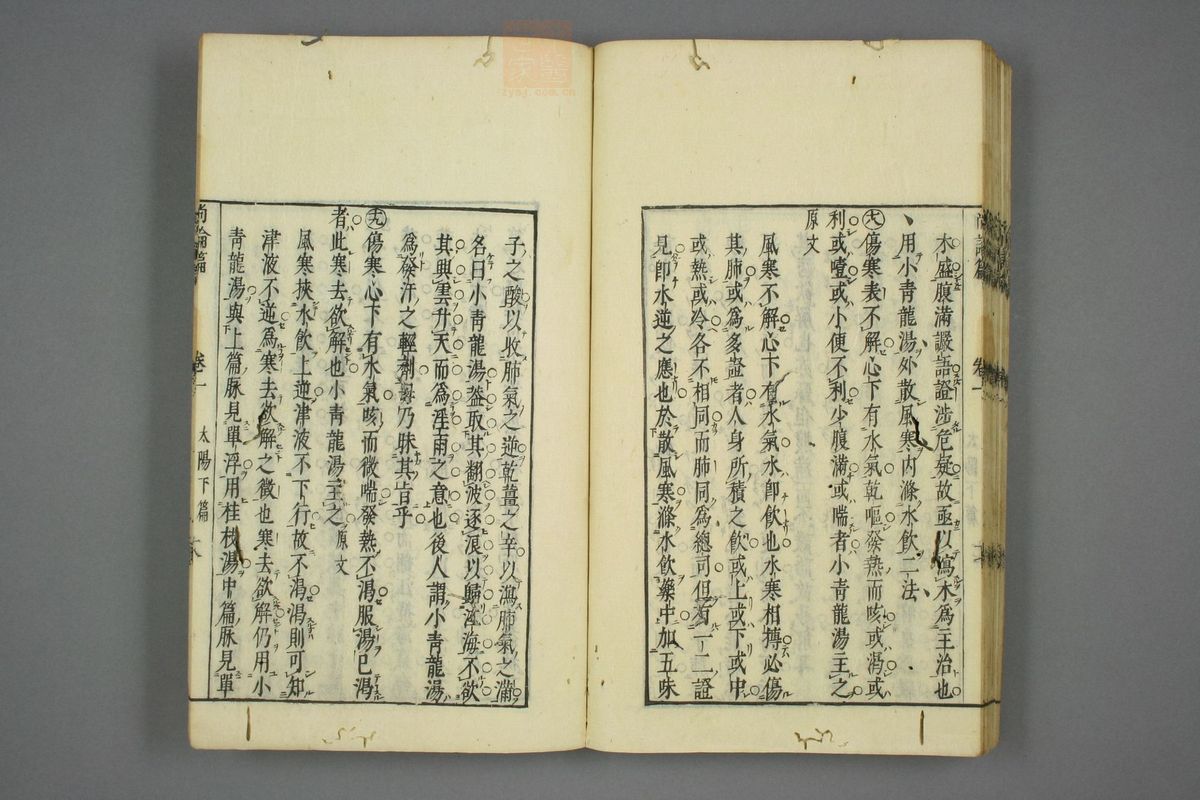 木盛腹滿讝語證涉危疑故亟以瀉木爲主治也
用小青龍湯外散風寒內滌水飲二法
傷寒表不解心下有水氣乾嘔發熱而咳或渴或
利或噎或小便不利少腹滿或喘者小青龍湯主之
原文
風寒不解心下有水氣水卽飲也水寒相搏必傷
其肺或爲多證者人身所積之飲或上或下或中
或熱或冷各不相同而肺同爲總司但有一二證
見卽水逆之應也於散風寒滌水飲藥中加五味
子之酸以收肺氣之逆乾薑之辛以瀉肺氣之滿
名曰小青龍湯蓋取其翻波逐浪以歸江海不欲
其興雲升天而爲淫雨之意也後人謂小青龍湯
爲發汗之輕劑毋乃昧其旨乎
十九 傷寒心下有水氣咳而微喘發熱不渴服湯已渴
者此寒去欲解也小青龍湯主之 原文
風寒挾水飲上逆津液不下行故不渴渴則可知
津液不逆爲寒去欲解之徵也寒去欲解仍用小
青龍湯與上篇脉見單浮用桂枝湯中篇脉見單
尚論篇 卷一 太陽下篇
zysj.com.cn